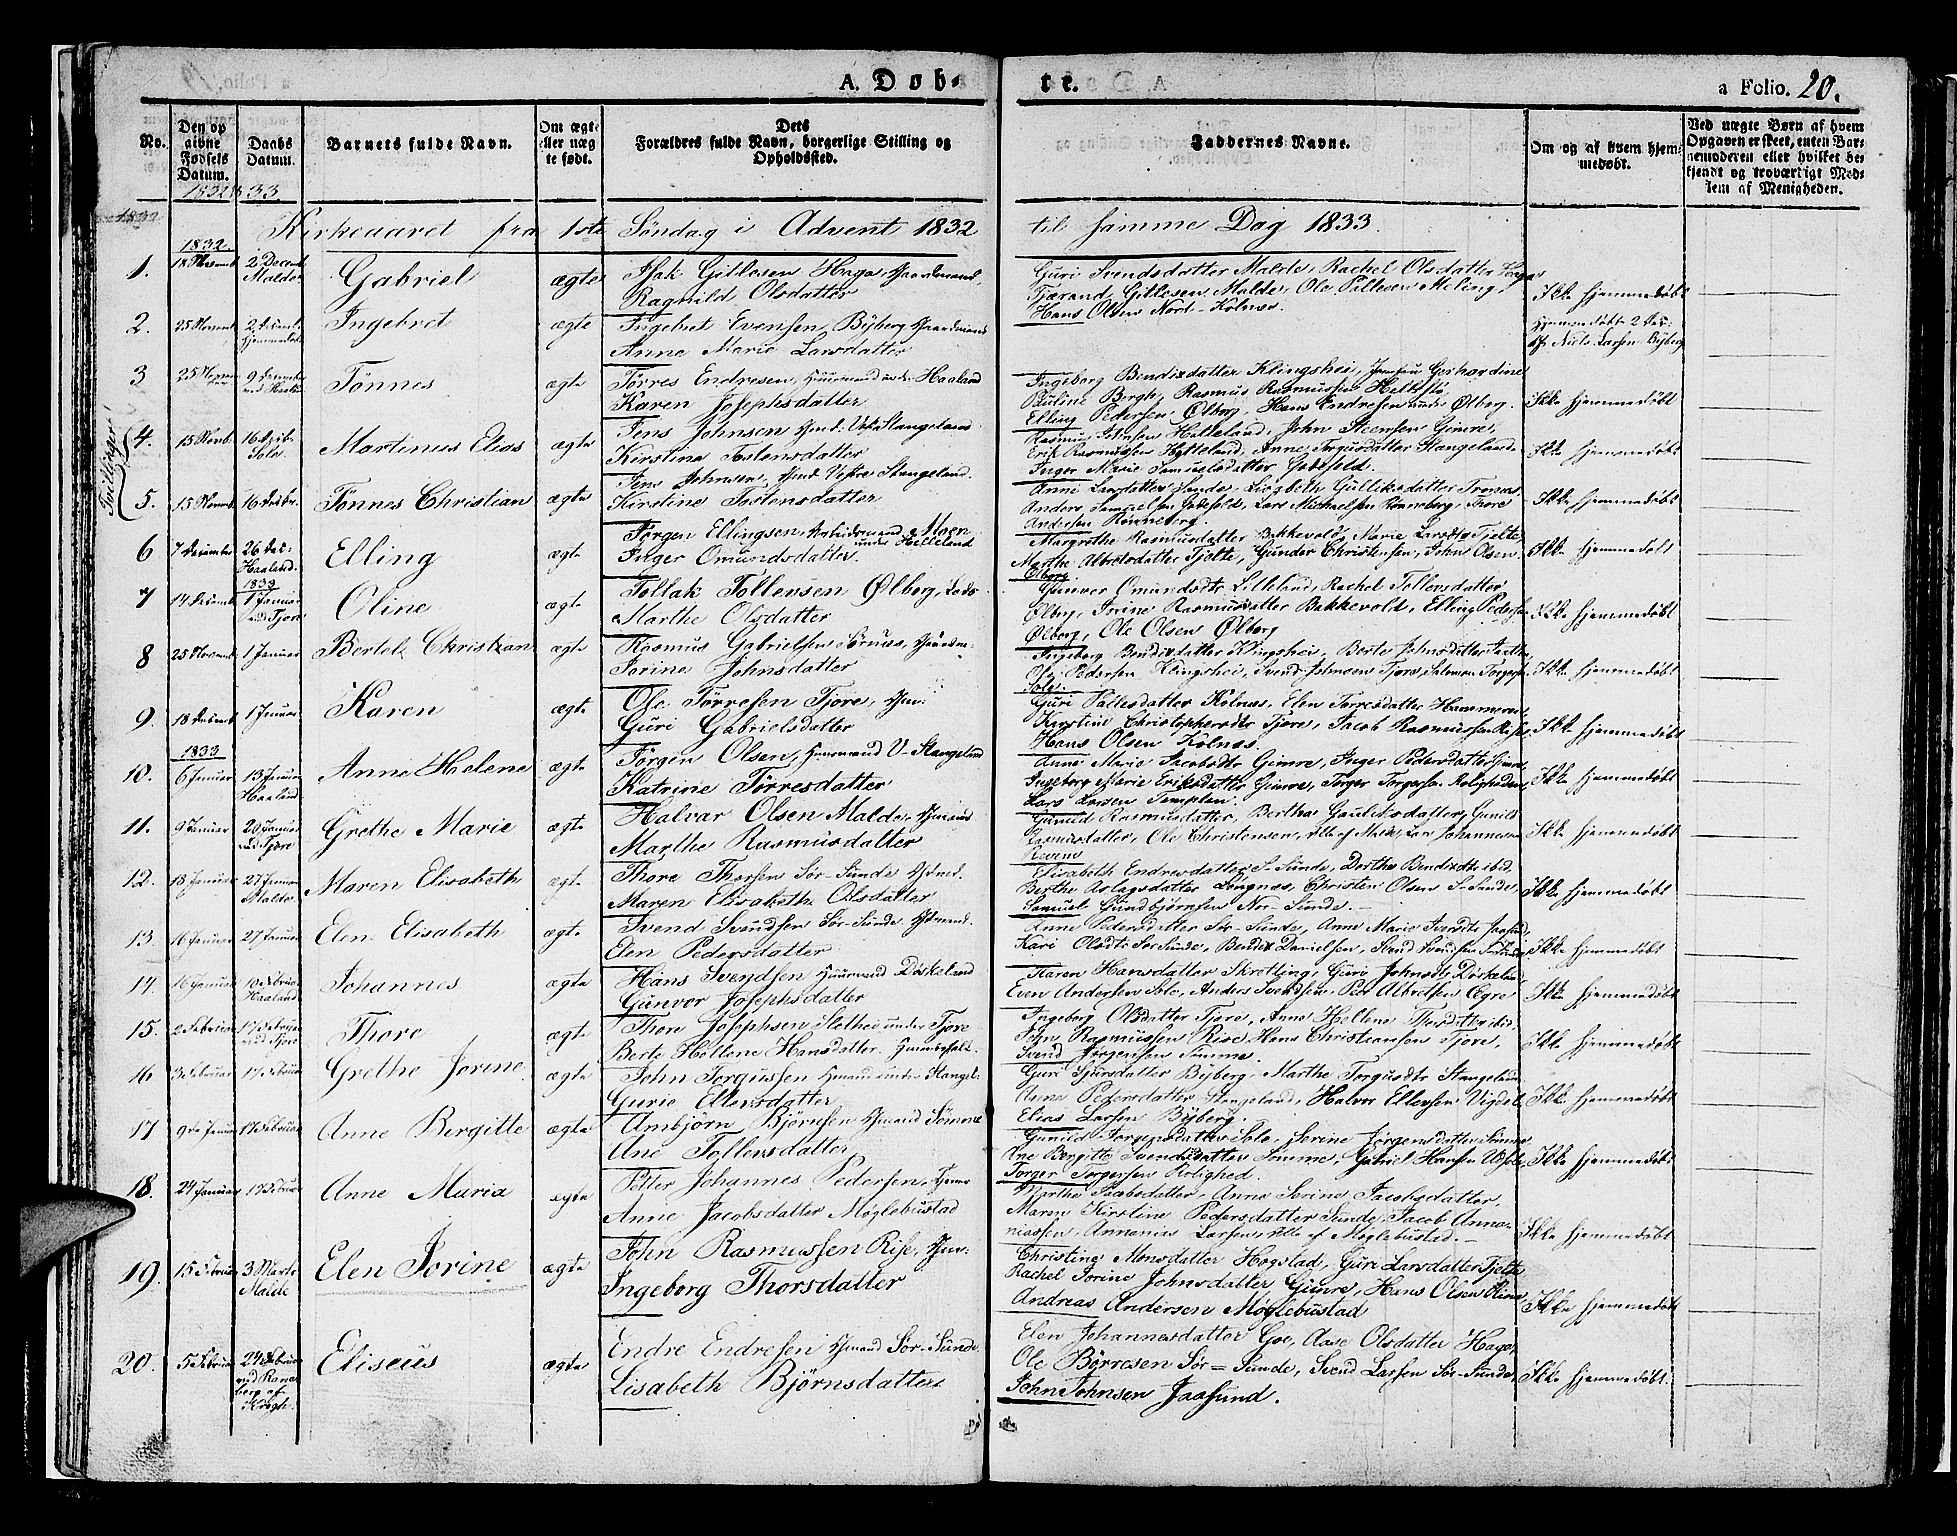 A. Døb-
te.
a Folio. 20.
No.
Den op
givne
Fødsels
Datum.
1832 & 33
Daabs
Datum.
Barnets fulde Navn.
Om ægte
eller uæg
te født.
Dets
Forældres fulde Navn, borgerlige Stilling og
Opholdssted.
Faddernes Navne.
Om og af hvem hjem-
medøbt.
Ved uægte Børn af hvem
Opgaven er skeet, enten Bar-
nemoderen eller hvilket be-
kjendt og troværdigt Med-
lem af Menigheden.
Kirkeaaret fra 1ste Søndag i Advent 1832
til samme Dag 1833.
1832
1.
2 Decemb
Malde
Gabriel
ægte
Isak Gitlesen Haga, Gaardmand,
Ragnild Olsdatter
Guri Svendsdatter Malde, Rachel Olsdatter Haga
Tjærand Gitlesen Malde, Ole Pellesen Meling,
Hans Olsen Nord-Kolnæs.
Ikke hjemmedøbt
2.
25 Novemb
Ingebret
ægte
Ingebret Evensen, Byberg Gaardmand
Anne Marie Larsdatter
Hjemmedøbt 2 Dec:
af Niels Larsen Byberg
3
Tønnes
ægte
Tørres Endresen, Huusmand under Haaland
Karen Josephsdatter
Ingeborg Bendixdatter Klingshei, Gerhardine
Pauline Bergh, Rasmus Rasmussen
Elling Pedersen Ølberg, Hans Endresen under Ølberg.
Ikke hjemmedøbt
Tvillinger
4.
15 Novb.
16
Sole.
Martinus Elias
ægte
Jens Johnsen Stangeland
Kirstine Tostensdatter
Rasmus Johnsen Halleland, John Steensen Gimre,
Erik Rasmussen Hytteland, Anne Torgusdatter Stangeland
Inger Marie Samuelsdatter
Ikke hjemmedøbt
5.
15 Novemb.
Tønnes Christian
ægte
Jens Johnsen, Vestre Stangeland.
Kirstine Tostensdatter
Anne Larsdatter Sunde, Lisabeth Gulliksdatter
Anders Samuelsen Lars Michaelsen Rønneberg, Thore
Andersen Rønneberg.
Ikke hjemmedøbt
6
7 December
26 Dec:
Haaland.
Elling
ægte
Jørgen Ellingsen, Arbeidsmand Moen
under Helleland
Inger Omundsdatter.
Margrethe Rasmusdatter Bekkevold, Marie Larsdtr Tjelte
Marthe Albretsdatter Tjelte, Gunder Christensen, John Olsen
Ølberg
Ikke hjemmedøbt
1833
7
14 Decemb
1 Januar
ved Tjora
Oline
ægte
Tollak Tollevsen Ølberg, Lods
Marthe Olsdatter
Gunvor Omundsdtr Lilleland, Rachel Tollevsdatter
Ølberg, Serine Rasmusdatter Bekkevold, Elling Pedersen
Ølberg, Ole Olsen Ølberg
Ikke hjemmedøbt
8
25 Novemb
1 Januar
Bertel Christian
ægte
Rasmus Gabrielsen Sørnæs, Gaardm.
Jorine Johnsdatter
Ingeborg Bendixdatter Klingshei, Berte Johnsdatter
Ole Pedersen Klingshei, Svend Johnsen Tjora, Salemon Torgersen
Sole
Ikke hjemmedøbt
9.
18 Decemb
1 Januar
Karen
ægte
Ole Tørresen Tjore,
Guri Gabrielsdatter
Guri Pallesdatter Kolnæs, Elen Torresdatter
Kirstine Christophersdtr Tjore, Jacob Rasmussen
Hans Olsen Kolnæs.
Ikke hjemmedøbt
1833
10.
6 Januar
13 Januar
Haaland
Anne Helene
ægte
Jørgen Olsen, Huusmand V-Stangeland
Katrine Tørresdatter
Anne Marie Jacobsdtr Gimre, Inger Pedersdatter Gimre,
Ingeborg Marie Eriksdatter Gimre, Torger Torgersen Rolighed
Lars Larsen
Ikke hjemmedøbt
11.
9 Januar
20 Januar
ved Tjore
Grethe Marie
ægte
Halvar Olsen Malde,
Marthe Rasmusdatter
Gunild Rasmusdatter, Berthe Gunild
Rasmusdatter, Ole Christensen, Alle af Malde, Lars Johannesen
Revem
Ikke hjemmedøbt
12.
18 Januar
27 Januar
Malde
Maren Elisabeth
ægte
Thore Thorsen Sør-Sunde
Maren Elisabeth Olsdatter
Elisabeth Endresdatter S-Sunde, Dorthe Bendixdtr ibid,
Berthe Christen Olsen S-Sunde,
Samuel Gundbjørnsen Nor-Sunde.
Ikke hjemmedøbt
13.
16 Januar
27 Januar
Elen Elisabeth
ægte
Svend Svendsen Sør-Sunde
Elen Pedersdatter
Anne Pedersdatter Sør-Sunde, Anne Marie
Kari Olsdtr Sør Sunde, Bendix Danielsen, Svend Svendsen
Ikke hjemmedøbt
14.
16 Januar
10 Februar
Haaland
Johannes
ægte
Hans Svendsen Huusmand Døskeland
Gunvor Josephsdatter
Karen Hansdatter Skrotting, Guri Johnsdtr
Even Andersen Sole, Anders Svendsen, Peder Albretsen
Ikke hjemmedøbt
15.
2 Februar
17 Februar
ved Tjore
Thore
ægte
Thore Josephsen Slethei under Tjore
Berte Hellene Hansdatter.
Ingeborg Olsdatter Tjore, Anne Hellene Thorsdatter ibid,
John Rasmussen Rise, Hans Christiansen Tjore,
Svend Jørgensen Sømme.
Ikke hjemmedøbt
16
3 Februar
17 Februar
Grethe Jorine
ægte
John Torgussen under Stangel.
Gurie Ellevsdatter
Guri Byberg, Marthe Torgusdtr Stangeland
Anne Pedersdatter Stangeland, Halvor Ellevsen Vigdel
Elias Larsen Byberg.
Ikke hjemmedøbt
17
9de Januar
17 Februar
Anne Bergitte
ægte
Ambjørn Bjørnsen Sømme
Ane Tollevsdatter
Gunild Sole, Serine Jørgensdatter Sømme
Ane Bergitte Svendsdatter Sømme, Gabriel Hansen
Torger Torgersen Rolighed.
Ikke hjemmedøbt
18.
24 Januar
17 Februar
Anne Maria
ægte
Peder Johannes Pedersen,
Anne Jacobsdatter Møglebustad
Marthe Anne Serine Jacobsdatter,
Maren Kirstine Pedersdatter Sunde, Jacob Anna-
niassen, Annanias Larsen, Alle af Møglebustad.
Ikke hjemmedøbt
19.
15 Februar
3 Marts
Malde
Elen Jorine
ægte
John Rasmussen Rise,
Ingeborg Thorsdatter
Christine Monsdatter Hogstad, Guri Larsdatter Tjelte
Rachel Jorine Johnsdatter Gimre, Hans Olsen
Andreas Andersen Møglebustad
Ikke hjemmedøbt
20.
5 Februar
24 Februar
ved
af
Krogh.
Eliseus
ægte
Endre Endresen Sør-Sunde.
Lisabeth Bjørnsdatter
Elen Johannesdatter Goe, Aase Olsdatter Haga,
Ole Børresen Sør-Sunde, Svend Larsen Sør-Sunde,
John Johnsen Jaasund.
Ikke hjemmedøbt.